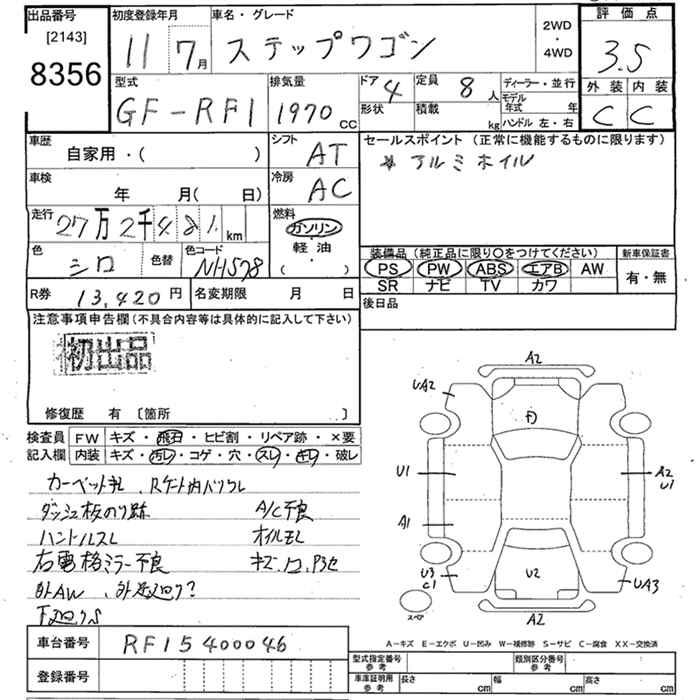 出品番号 初度登録年月 車名・グレード 2WD・4WD 評価点
[2143] 11 7月 ステップワゴン 3.5
8356 外装 内装
型式 排気量 ドア 4 定員 8人 ディーラー・並行
GF-RF1 1970cc 形状 積載 kg モデル年式 年 C C
ハンドル 左・右
車歴 シフト セールスポイント (正常に機能するものに限ります)
自家用・( ) AT アルミホイル
車検 冷房
年 月( 日) AC
走行 燃料
27万2千481km ガソリン・軽油・( )
色 色替 色コード 装備品 (純正品に限り○をつけてください) 新車保証書
シロ NH578 PS PW ABS エアB AW 有・無
SR ナビ TV カワ
R券 13,420円 名変期限 月 日 後日品
注意事項申告欄 (不具合内容等は具体的に記入して下さい)
初出品
修復歴 有 [箇所 ]
検査員 FW キズ・飛石・ヒビ割・リペア跡・×要
記入欄 内装 キズ・汚レ・コゲ・穴・スレ・キレ・破レ
カーペット汚れ
ダッシュ板のり跡 A/C不良
ハンドルスレ オイルモレ
右電格ミラー不良
外AW
下廻りS
A2
UA2
U1 A2
U1
A1
U3 U2 UA3
C1
A2
スペア
車台番号 RF15400046
登録番号
A-キズ E-エクボ U-凹み W-補修跡 S-サビ C-腐食 XX-交換済
型式指定番号 参考 類別区分番号 参考
車庫証明用 参考 長さ cm 幅 cm 高さ cm